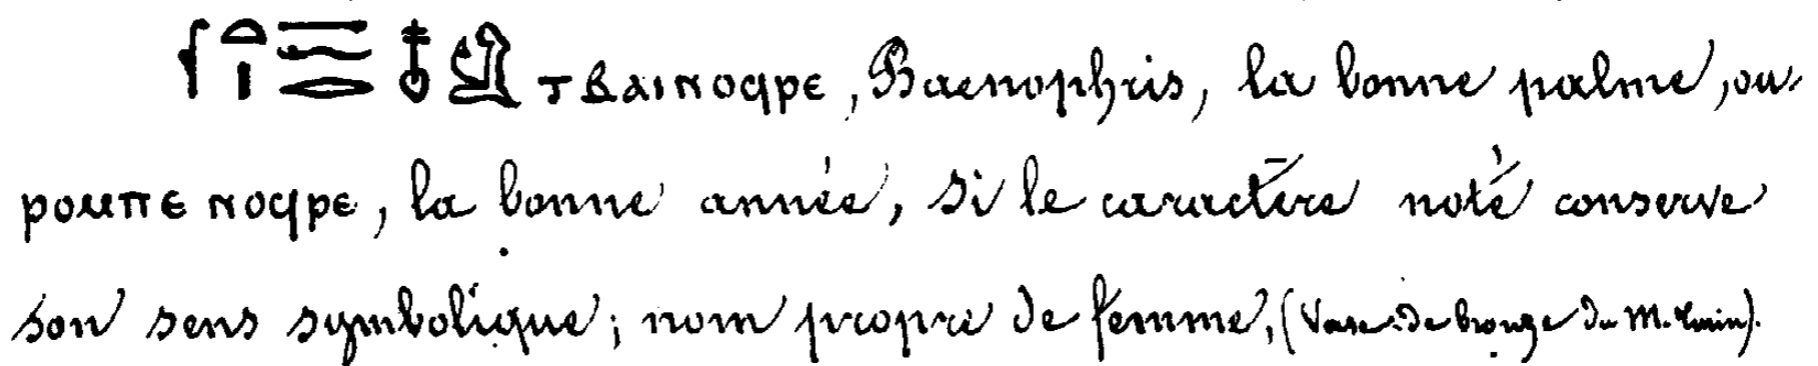 𓆳𓏏𓏤𓇿𓈖𓂋𓄤𓁐 ⲧⲃⲁⲓⲛⲟϥⲣⲉ, Baenophris, la bonne palme, ou
ⲣⲟⲙⲡⲉ ⲛⲟϥⲣⲉ, la bonne année, si le caractère noté conserve
son sens symbolique; nom propre de femme, (Vase de bronze du M. Turin).